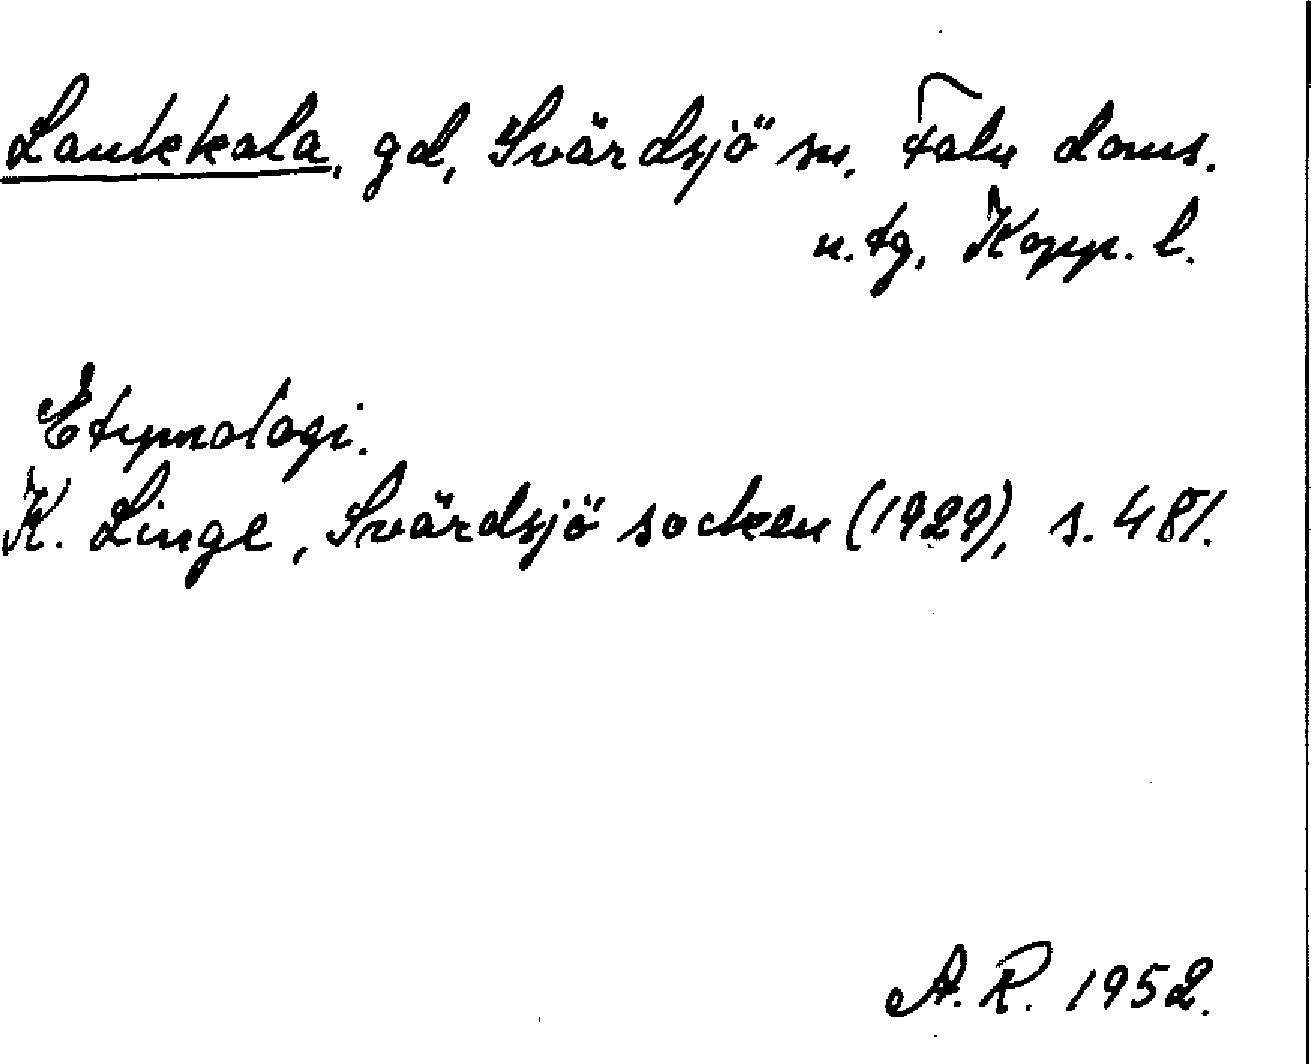 Laukkala, gd, Svärdsjö sn. Falu doms.
n. tg, Kopp. l.
Etymologi.
K. Linge, Svärdsjö socken (1929), s. 481.
A. R. 1952.